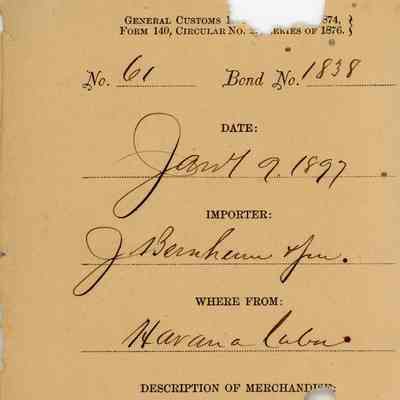 GENERAL CUSTOMS 1874,
FORM 140, CIRCULAR NO. SERIES OF 1876.
No. 61 Bond No. 1838
DATE:
Jany 9. 1897
IMPORTER:
J Bernheim & Son.
WHERE FROM:
Havana Cuba
DESCRIPTION OF MERCHANDISE: